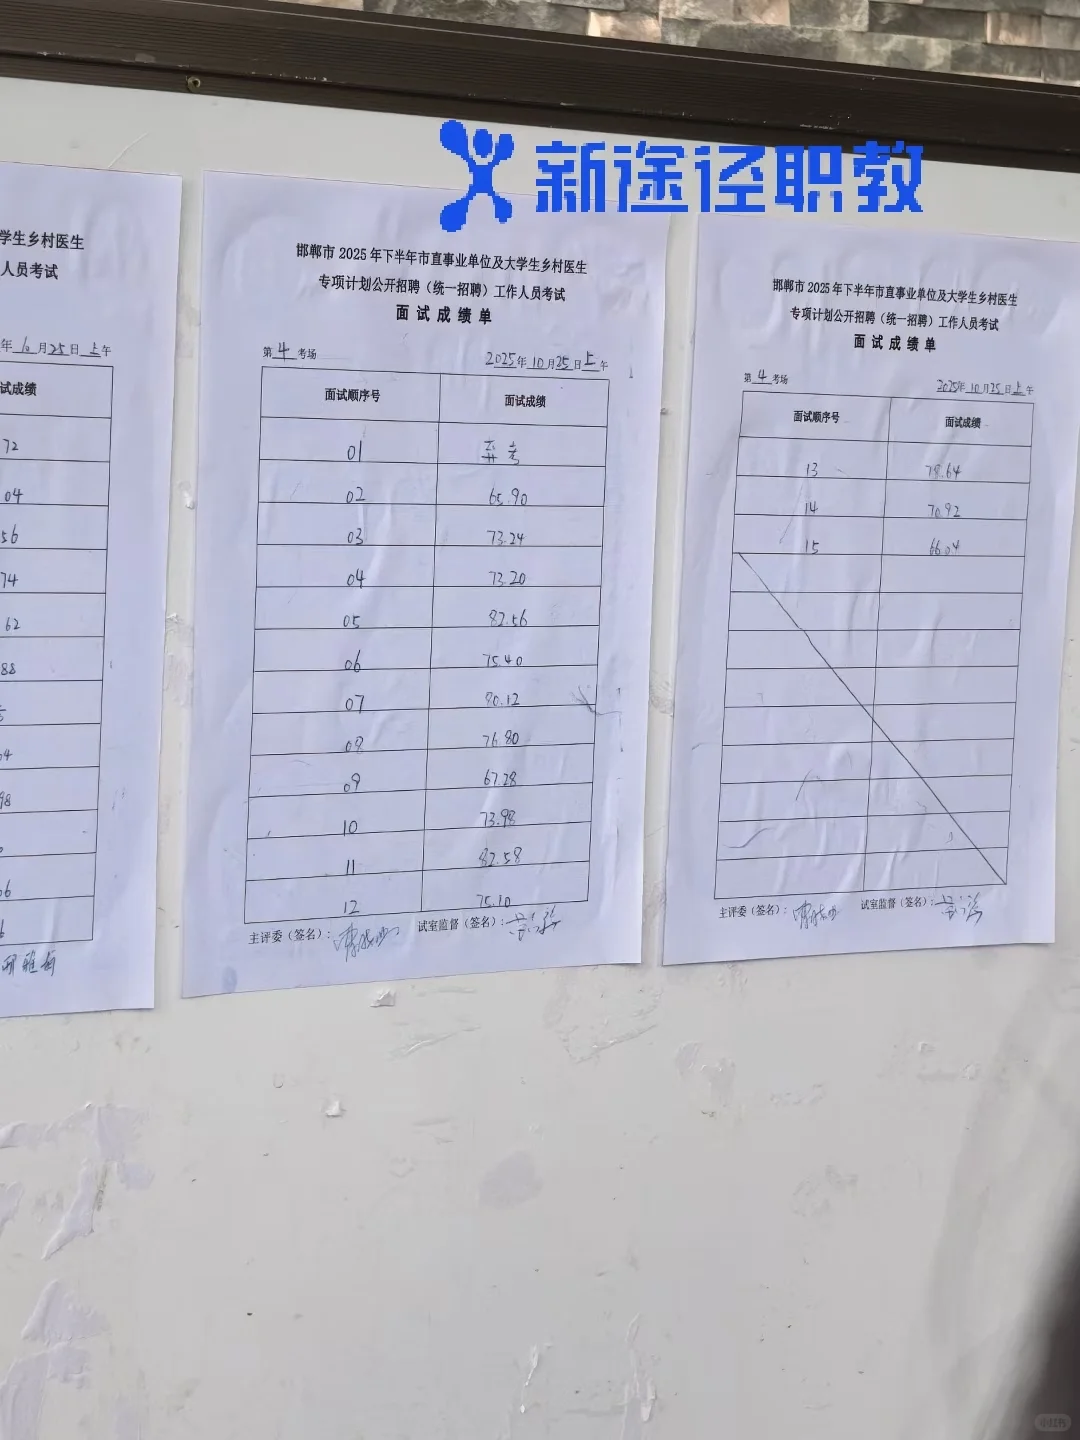 新途径职教
学生乡村医生
人员考试
年10月25日上午
试成绩
72
04
56
74
62
88
04
98
06
邯郸市2025年下半年市直事业单位及大学生乡村医生
专项计划公开招聘（统一招聘）工作人员考试
面试成绩单
第4考场 2025年10月25日上午
面试顺序号 面试成绩
01 弃考
02 65.90
03 73.24
04 73.20
05 82.56
06 75.40
07 80.12
08 76.80
09 67.28
10 73.98
11 82.58
12 75.10
主评委（签名）： 试室监督（签名）：
邯郸市2025年下半年市直事业单位及大学生乡村医生
专项计划公开招聘（统一招聘）工作人员考试
面试成绩单
第4考场 2025年10月25日上午
面试顺序号 面试成绩
13 78.64
14 70.92
15 66.04
主评委（签名）： 试室监督（签名）：
小红书